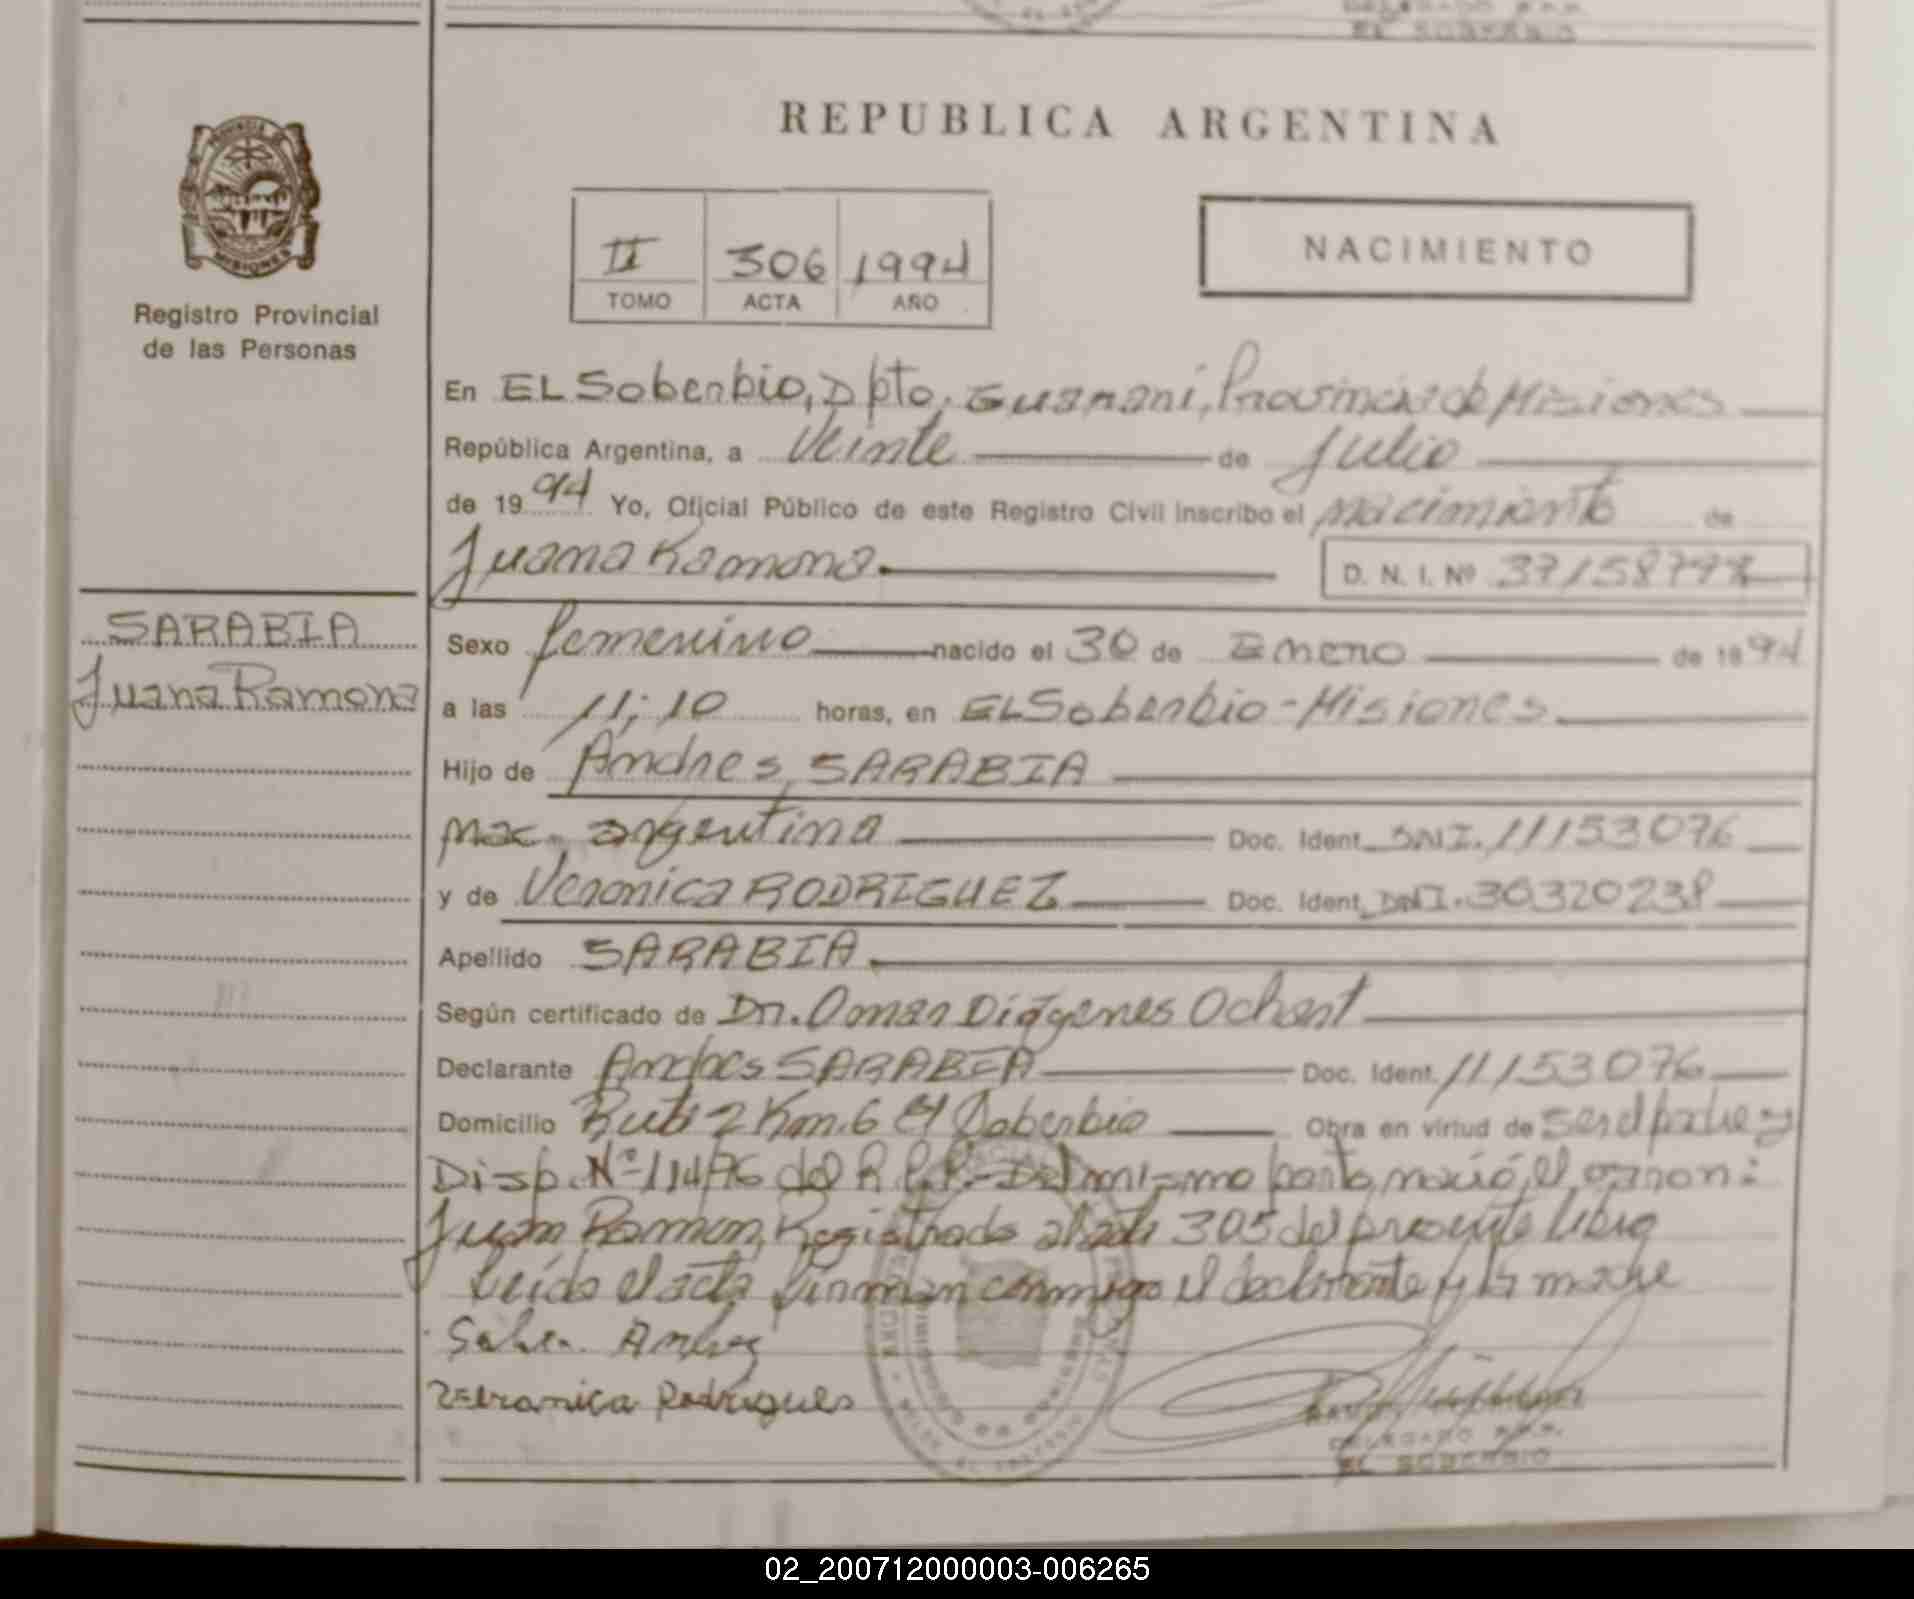 EL SOBERBIO
REPUBLICA ARGENTINA
PROVINCIA DE
MISIONES
Registro Provincial
de las Personas
II 306 1994
TOMO ACTA AÑO
NACIMIENTO
En EL Soberbio, Dpto. Guarani, Provincia de Misiones
República Argentina, a Veinte de Julio
de 1994 Yo, Oficial Público de este Registro Civil inscribo el nacimiento de
Juana Ramona D. N. I. Nº
SARABIA
Juana Ramona
Sexo femenino nacido el 30 de Enero de 1994
a las 11;10 horas, en EL Soberbio-Misiones
Hijo de Andres SARABIA
nac. argentina Doc. Ident. DNI. 11153076
y de Veronica RODRIGUEZ Doc. Ident. DNI. 30320238
Apellido SARABIA
Según certificado de Dr. Omar Diógenes Ochart
Declarante Andres SARABIA Doc. Ident. 11153076
Domicilio Ruta 2 Km.6 El Soberbio Obra en virtud de ser el padre y
Disp. Nº 114/76 del R.P.P.- Del mismo parto nació el varon:
Juan Ramon, Registrado al acta 305 del presente libro
Leída el acta firman conmigo el declarante y la madre
Veronica Rodrigues
DELEGADO R.P.P.
EL SOBERBIO
02_200712000003-006265